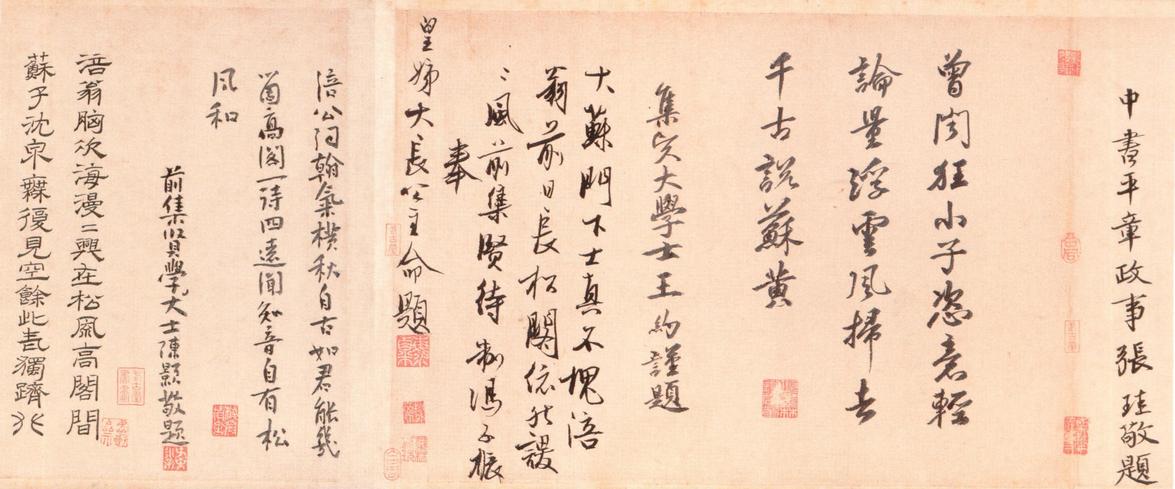 中書平章政事張珪敬題
曾聞狂小子恣意輕
論量浮雲風掃去
千古説蘇黄
集賢大學士王約謹題
大蘇門下士真不愧涪
翁前日長松閣依然謖
〻風前集賢待制馮子振
奉
皇姊大長公主命題
涪公詞翰氣橫秋自古如君能幾
酋高閣一詩四遠聞知音自有松
風和
前集賢學大士陳顥敬题
涪翁胸次海漫〻興在松風高閣間
蘇子沈泉寐復見空餘此卷獨躋